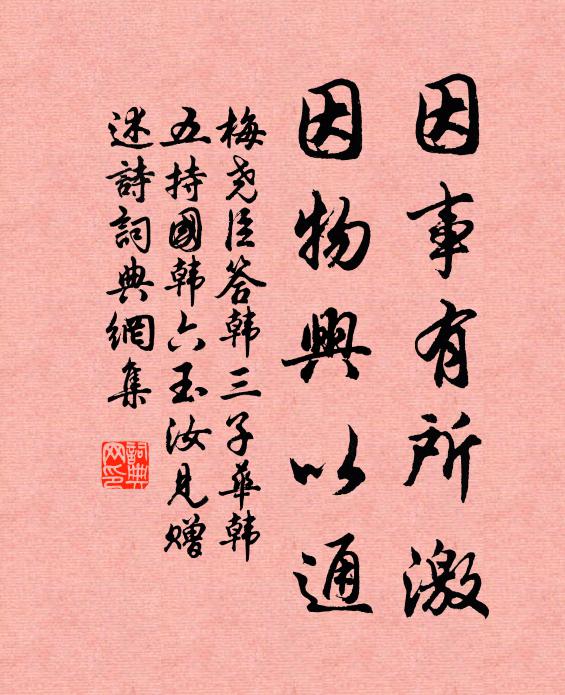 因事有所激
因物興以通
梅尧臣答韩三子華韩
五持國韩六玉汝見赠
述詩詞典網集
詞典網印